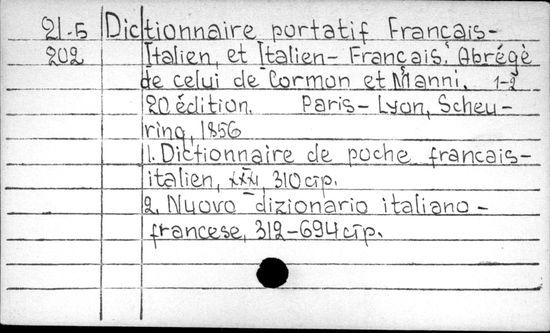 21-5 Dictionnaire portatif Français-
202 Italien, et Italien-Français. Abrégé
de celui de Cormon et Manni. 1-2
20 édition. Paris-Lyon, Scheu-
ring, 1856
1. Dictionnaire de poche francais-
italien, XXXI, 310 cтр.
2. Nuovo dizionario italiano-
francese, 312-694 cтр.